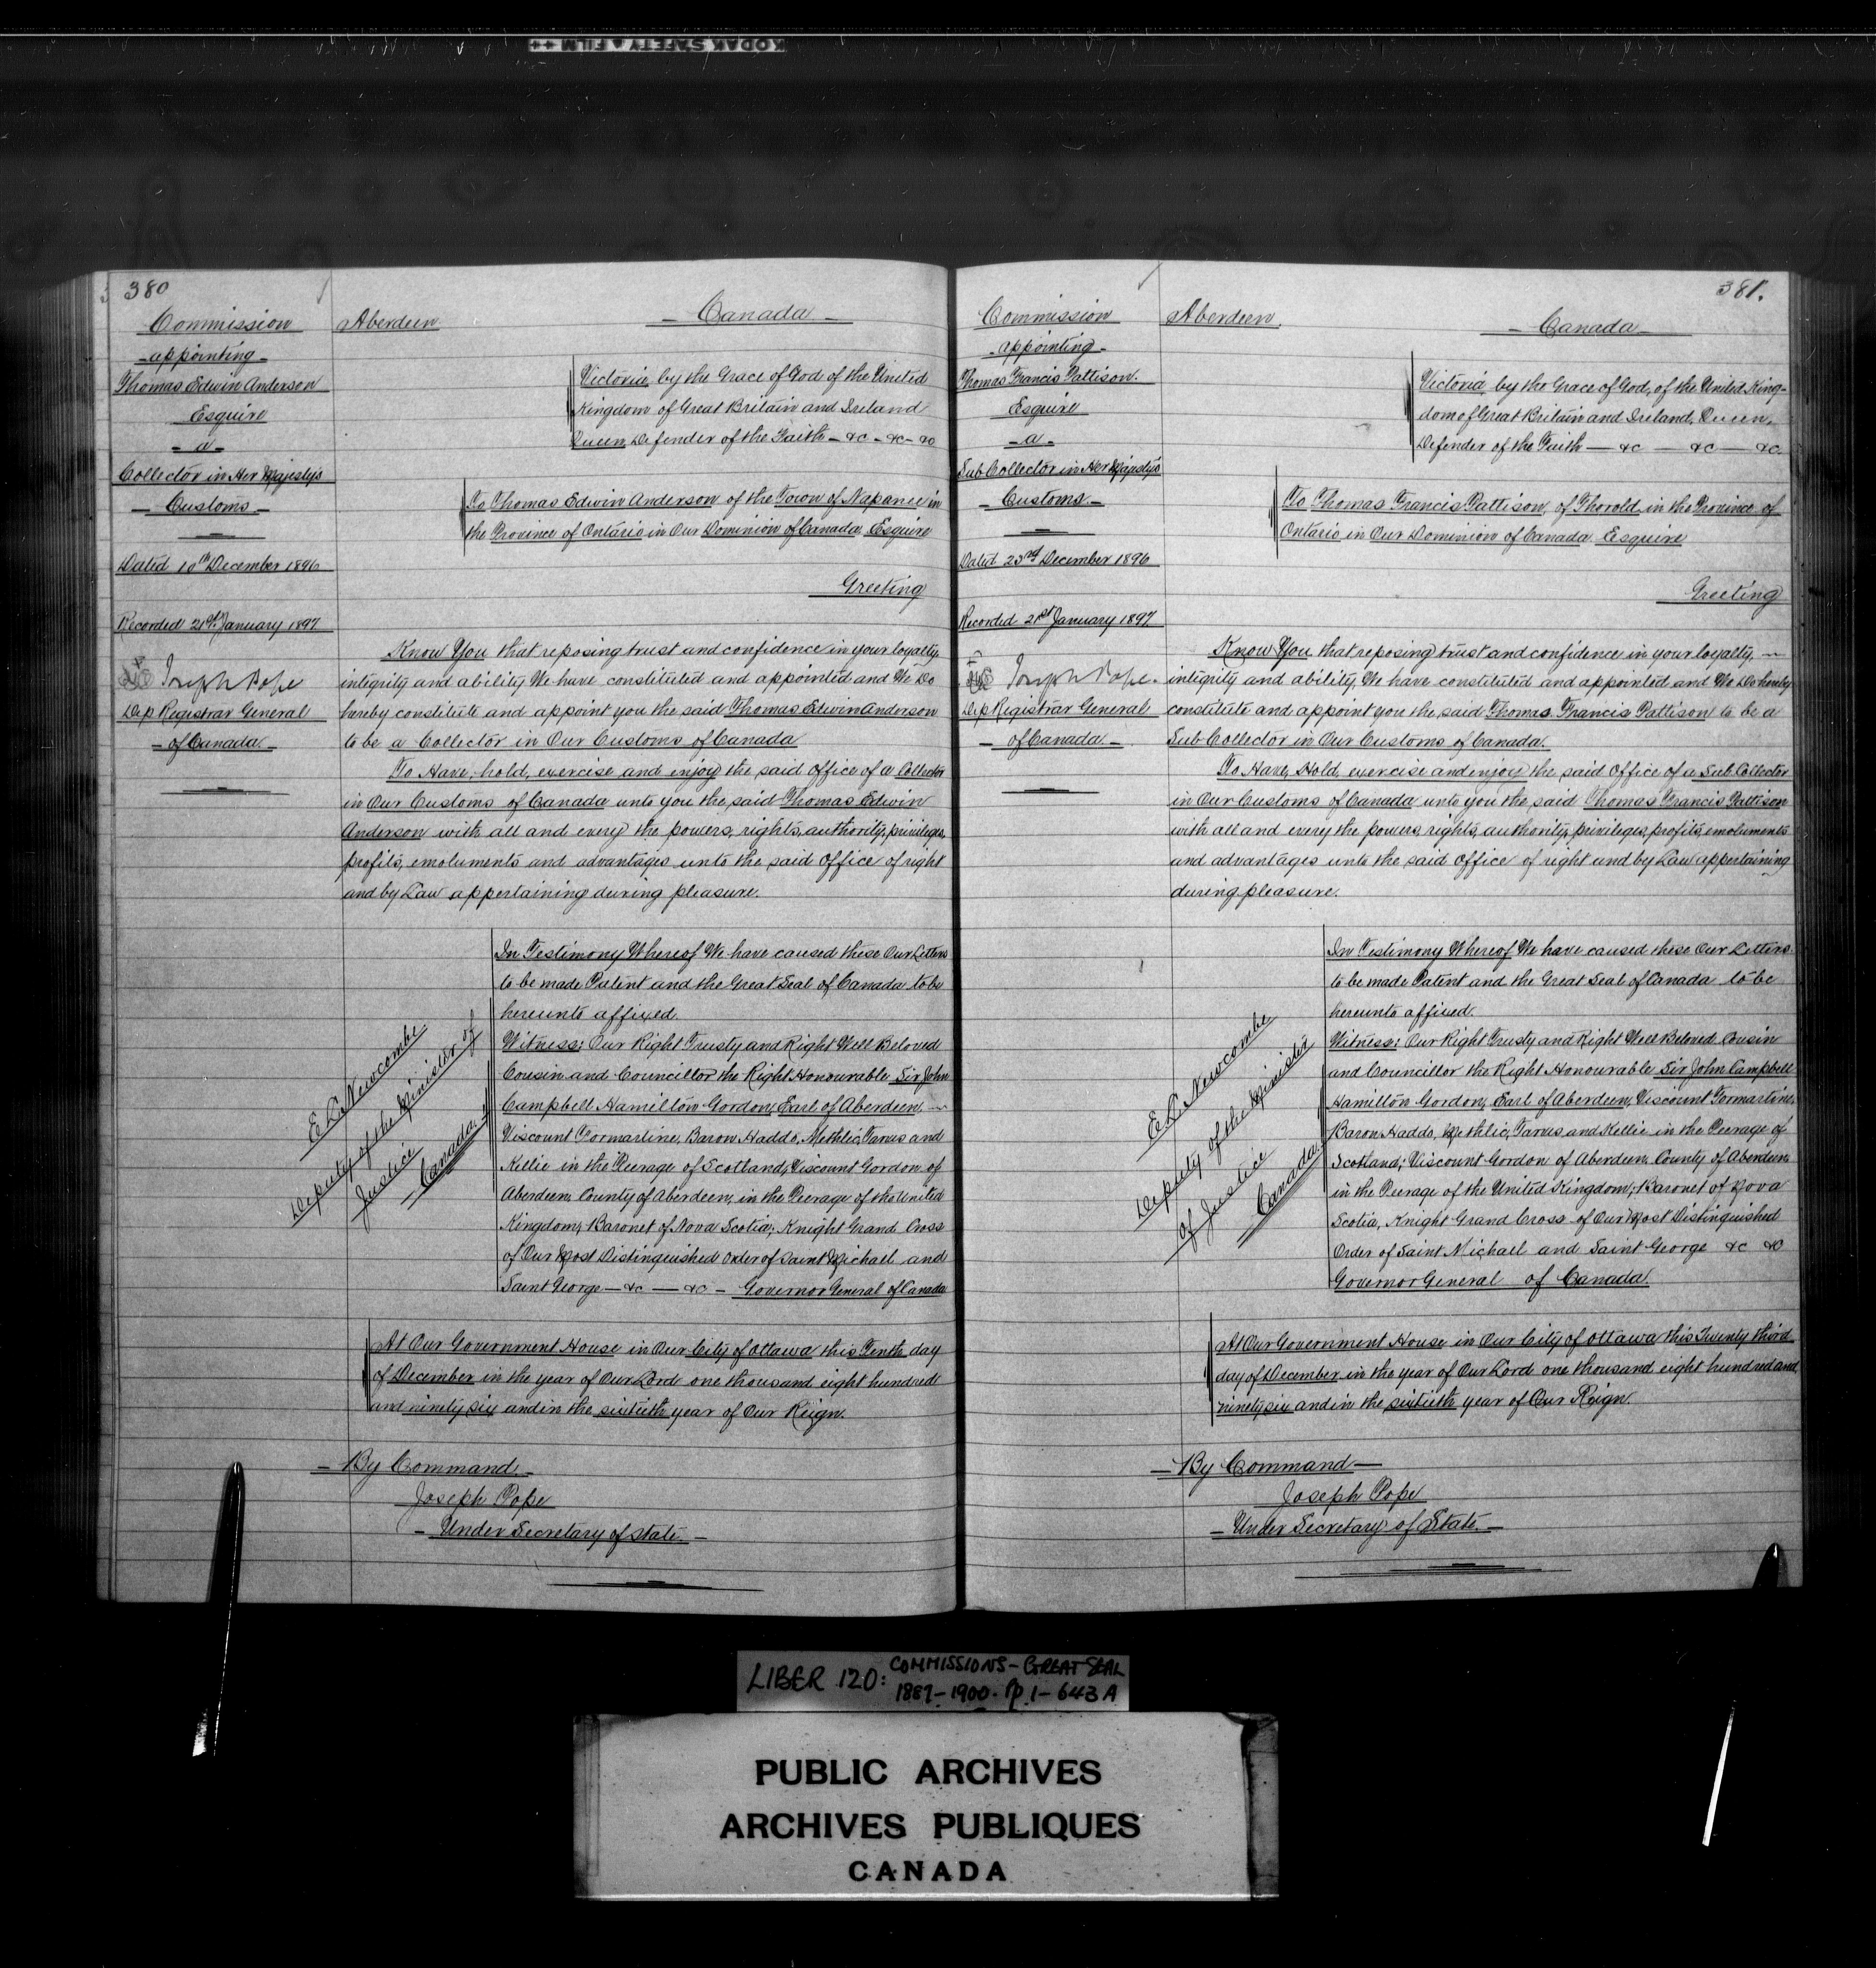 KODAK SAFETY FILM ++
380
Commission
- appointing -
Thomas Edwin Anderson
Esquire
- a -
Collector in Her Majesty's
- Customs -
Dated 10th December 1896
Recorded 21st January 1897
Joseph Pope
Dep Registrar General
- of Canada. -
Aberdeen
- Canada -
Victoria, by the Grace of God of the United
Kingdom of Great Britain and Ireland
Queen, Defender of the Faith - &c - &c - &c
To Thomas Edwin Anderson of the Town of Napanee in
the Province of Ontario in Our Dominion of Canada, Esquire
Greeting
Know You that reposing trust and confidence in your loyalty,
integrity and ability We have constituted and appointed and We Do
hereby constitute and appoint you the said Thomas Edwin Anderson
to be a Collector in Our Customs of Canada
To Have, hold, exercise and enjoy the said Office of a Collector
in Our Customs of Canada unto you the said Thomas Edwin
Anderson with all and every the powers, rights, authority, privileges,
profits, emoluments and advantages unto the said Office of right
and by Law appertaining during pleasure.
E. L. Newcombe.
Deputy of the Minister of
Justice
Canada.
In Testimony Whereof We have caused these Our Letters
to be made Patent and the Great Seal of Canada to be
hereunto affixed.
Witness: Our Right Trusty and Right Well Beloved
Cousin and Councillor the Right Honourable Sir John
Campbell Hamilton Gordon, Earl of Aberdeen, -
Viscount Formartine, Baron Haddo, Methlic, Tarves and
Kellie in the Peerage of Scotland; Viscount Gordon of
Aberdeen, County of Aberdeen, in the Peerage of the United
Kingdom; Baronet of Nova Scotia; Knight Grand Cross
of Our Most Distinguished Order of Saint Michael and
Saint George - &c - &c - Governor General of Canada
At Our Government House in Our City of Ottawa this Tenth day
of December in the year of Our Lord one thousand eight hundred
and ninety six and in the sixtieth year of Our Reign.
- By Command. -
Joseph Pope
- Under Secretary of State. -
381.
Commission
- appointing -
Thomas Francis Pattison.
Esquire
- a -
Sub Collector in Her Majesty's
- Customs. -
Dated 23rd December 1896
Recorded 21st January 1897.
Joseph Pope.
Dep Registrar General
- of Canada. -
Aberdeen.
- Canada -
Victoria, by the Grace of God, of the United King-
dom of Great Britain and Ireland, Queen,
Defender of the Faith - &c - &c - &c
To Thomas Francis Pattison, of Thorold in the Province of
Ontario in Our Dominion of Canada Esquire
Greeting
Know You that reposing trust and confidence in your loyalty, -
integrity and ability, We have constituted and appointed and We Do hereby
constitute and appoint you the said Thomas Francis Pattison to be a
Sub Collector in Our Customs of Canada.
To Have, Hold, exercise and enjoy the said Office of a Sub Collector
in Our Customs of Canada unto you the said Thomas Francis Pattison
with all and every the powers, rights, authority, privileges, profits, emoluments
and advantages unto the said Office of right and by Law appertaining
during pleasure.
E. L. Newcombe
Deputy of the Minister
of Justice
Canada.
In Testimony Whereof We have caused these Our Letters
to be made Patent and the Great Seal of Canada to be
hereunto affixed.
Witness: Our Right Trusty and Right Well Beloved Cousin
and Councillor the Right Honourable Sir John Campbell
Hamilton Gordon, Earl of Aberdeen, Viscount Formartine,
Baron Haddo, Methlic, Tarves and Kellie in the Peerage of
Scotland; Viscount Gordon of Aberdeen, County of Aberdeen
in the Peerage of the United Kingdom; Baronet of Nova
Scotia, Knight Grand Cross of Our Most Distinguished
Order of Saint Michael and Saint George &c &c
Governor General of Canada.
At Our Government House in Our City of Ottawa this Twenty third
day of December in the year of Our Lord one thousand eight hundred and
ninety six and in the sixtieth year of Our Reign.
- By Command -
Joseph Pope
- Under Secretary of State. -
LIBER 120: COMMISSIONS - GREAT SEAL
1887-1900. pp 1-643A
PUBLIC ARCHIVES
ARCHIVES PUBLIQUES
CANADA